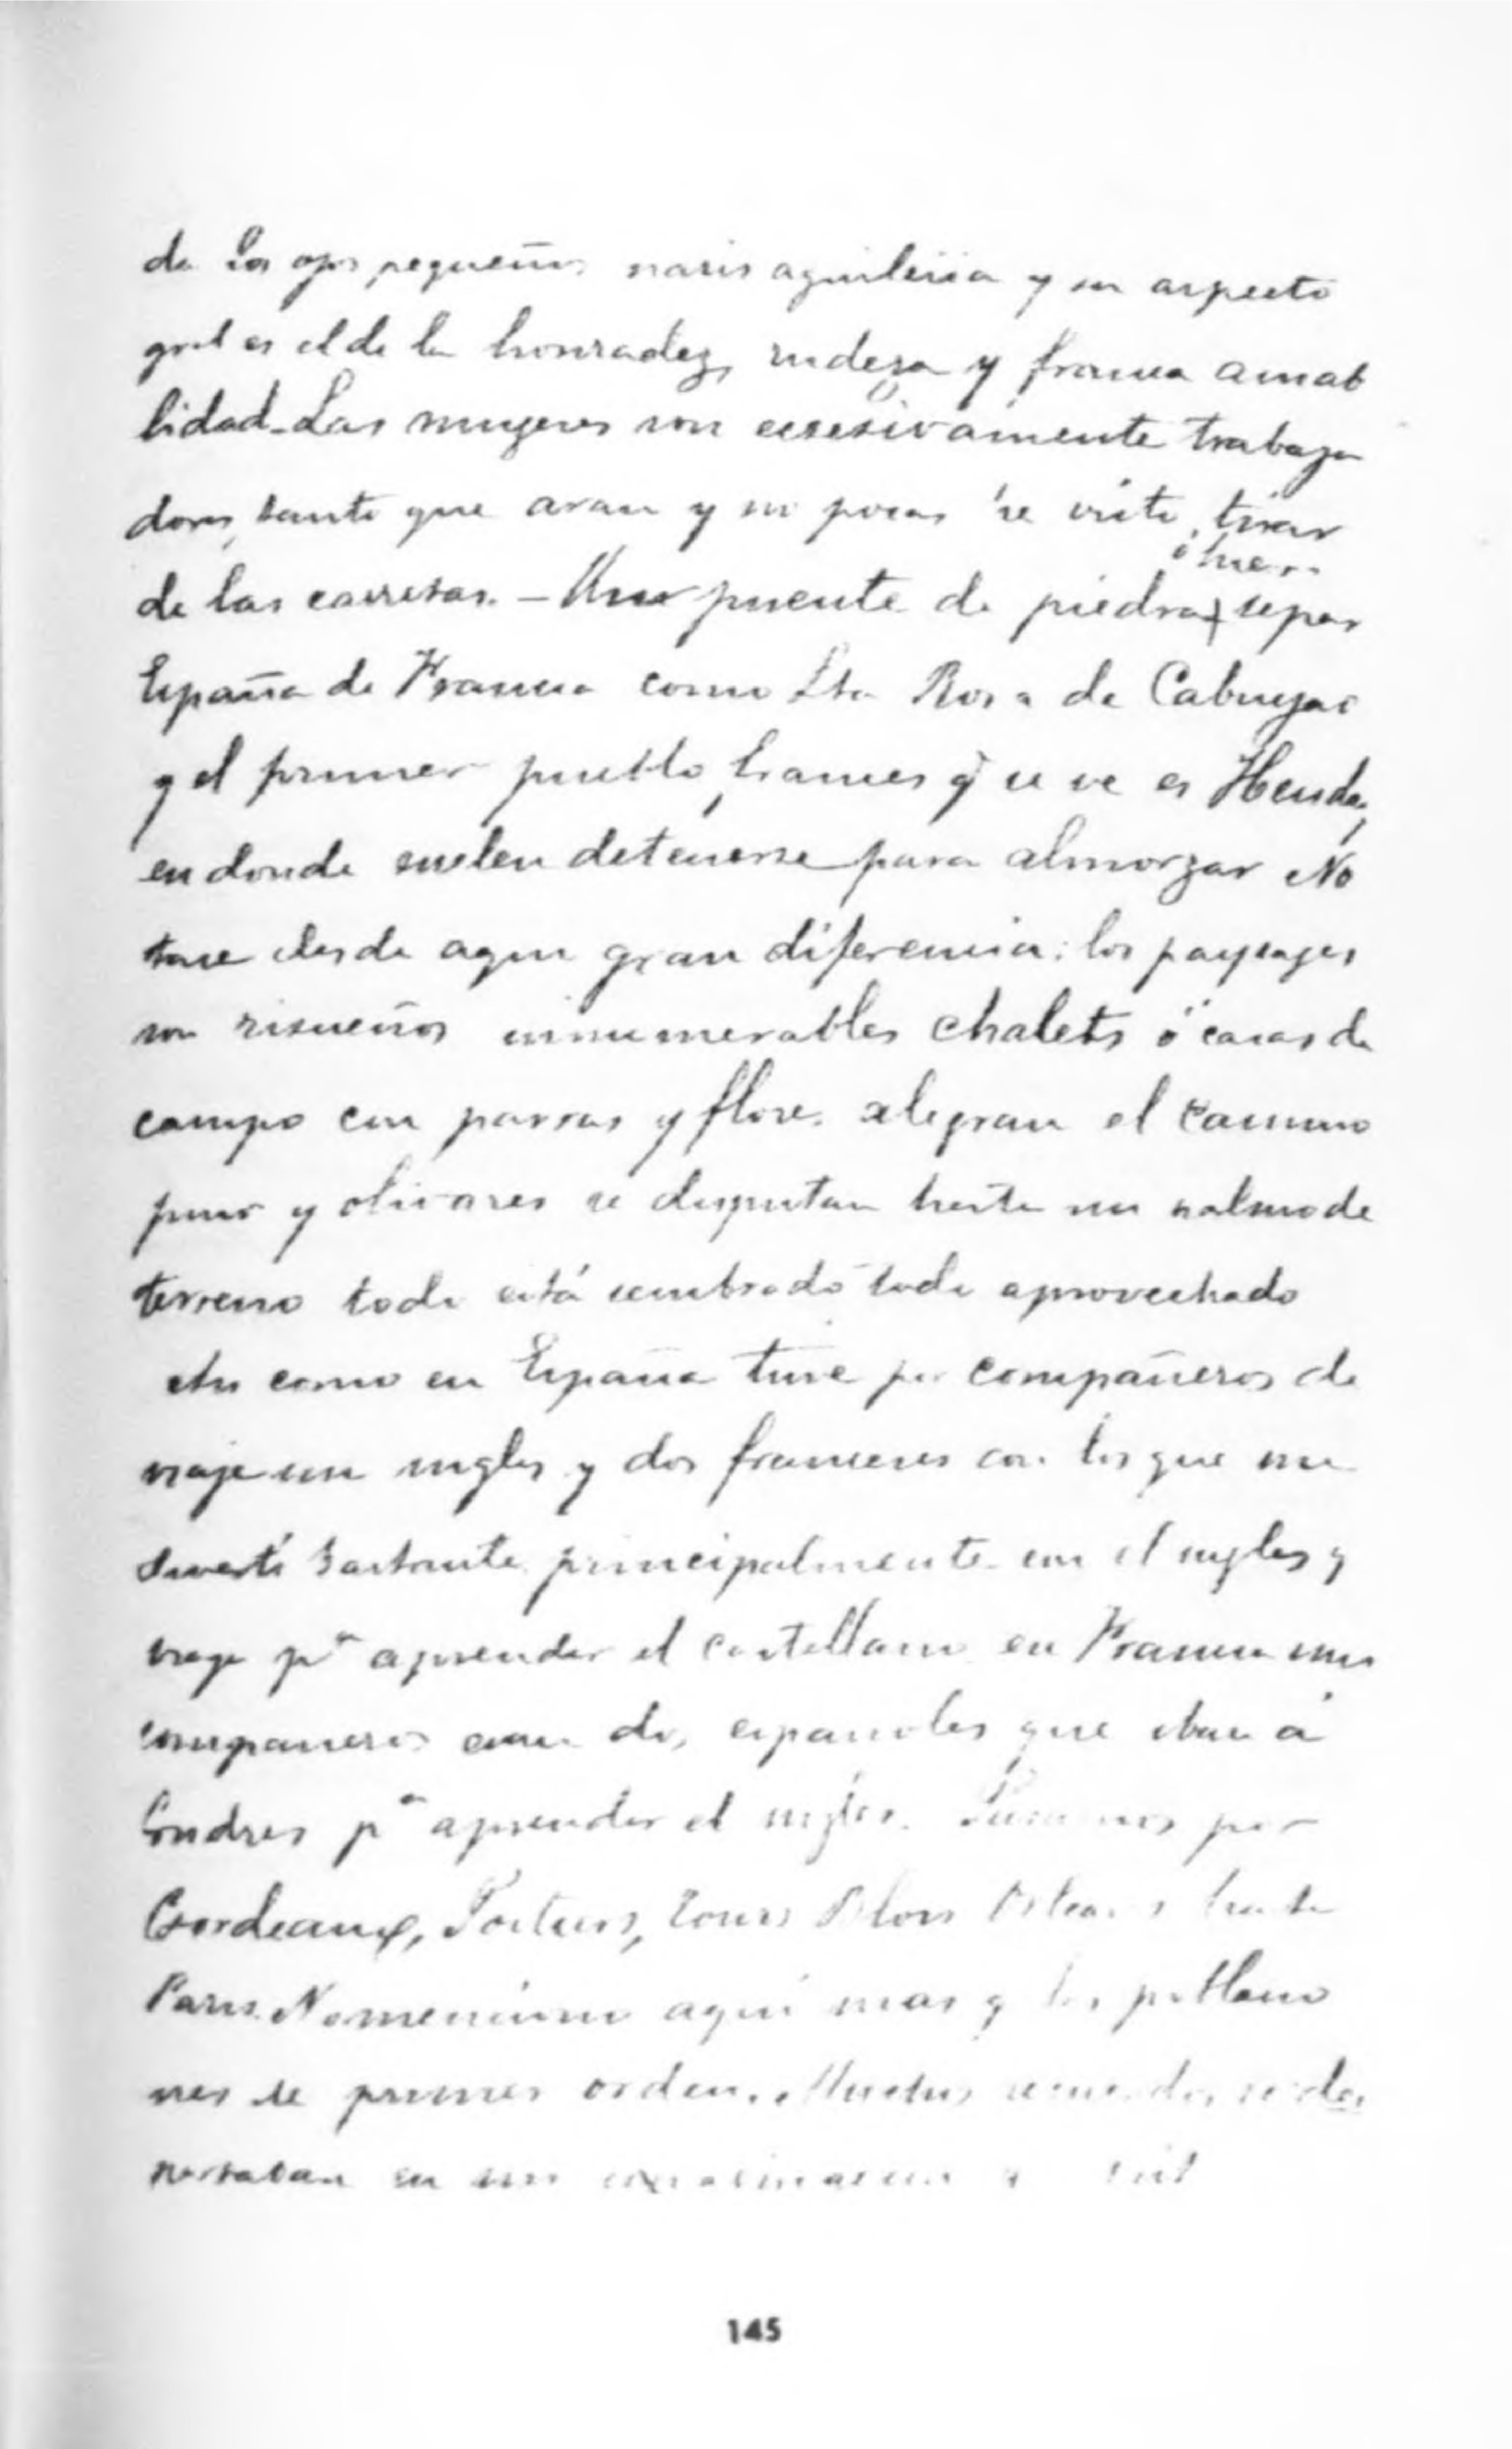 de los ojos pequeños naris aguileña y su aspecto
gral es el de la honradez, rudeza y franca amab
lidad. Las mugeres son ecsesivamente trabaja
doras, tanto que aran y no pocas he visto tirar
ó hierro
de las carretas. — Un puente de piedra separa
España de Francia como Sta Rosa de Cabuyao
y el primer pueblo frances q̃ se ve es Henda,
en donde suelen detenerse para almorzar No
tase desde aqui gran diferencia: los paysages
son risueños innumerables chalets ó casas de
campo con parras y flores alegran el camino
pinos y olivares se disputan hasta un palmo de
terreno todo está sembrado todo aprovechado
Asi como en España tuve por compañeros de
viaje un ingles y dos franceses con los que me
divertí bastante principalmente con el ingles q
viaja pª aprender el castellano en Francia mis
compañeros eran dos españoles que iban á
Londres pª aprender el ingles. Pasamos por
Bordeaux, Poitiers, Tours Blois Orleans hasta
Paris. No menciono aquí mas q los poblacio
nes de primer orden. Muchos recuerdos se des
pertaban en mi
145